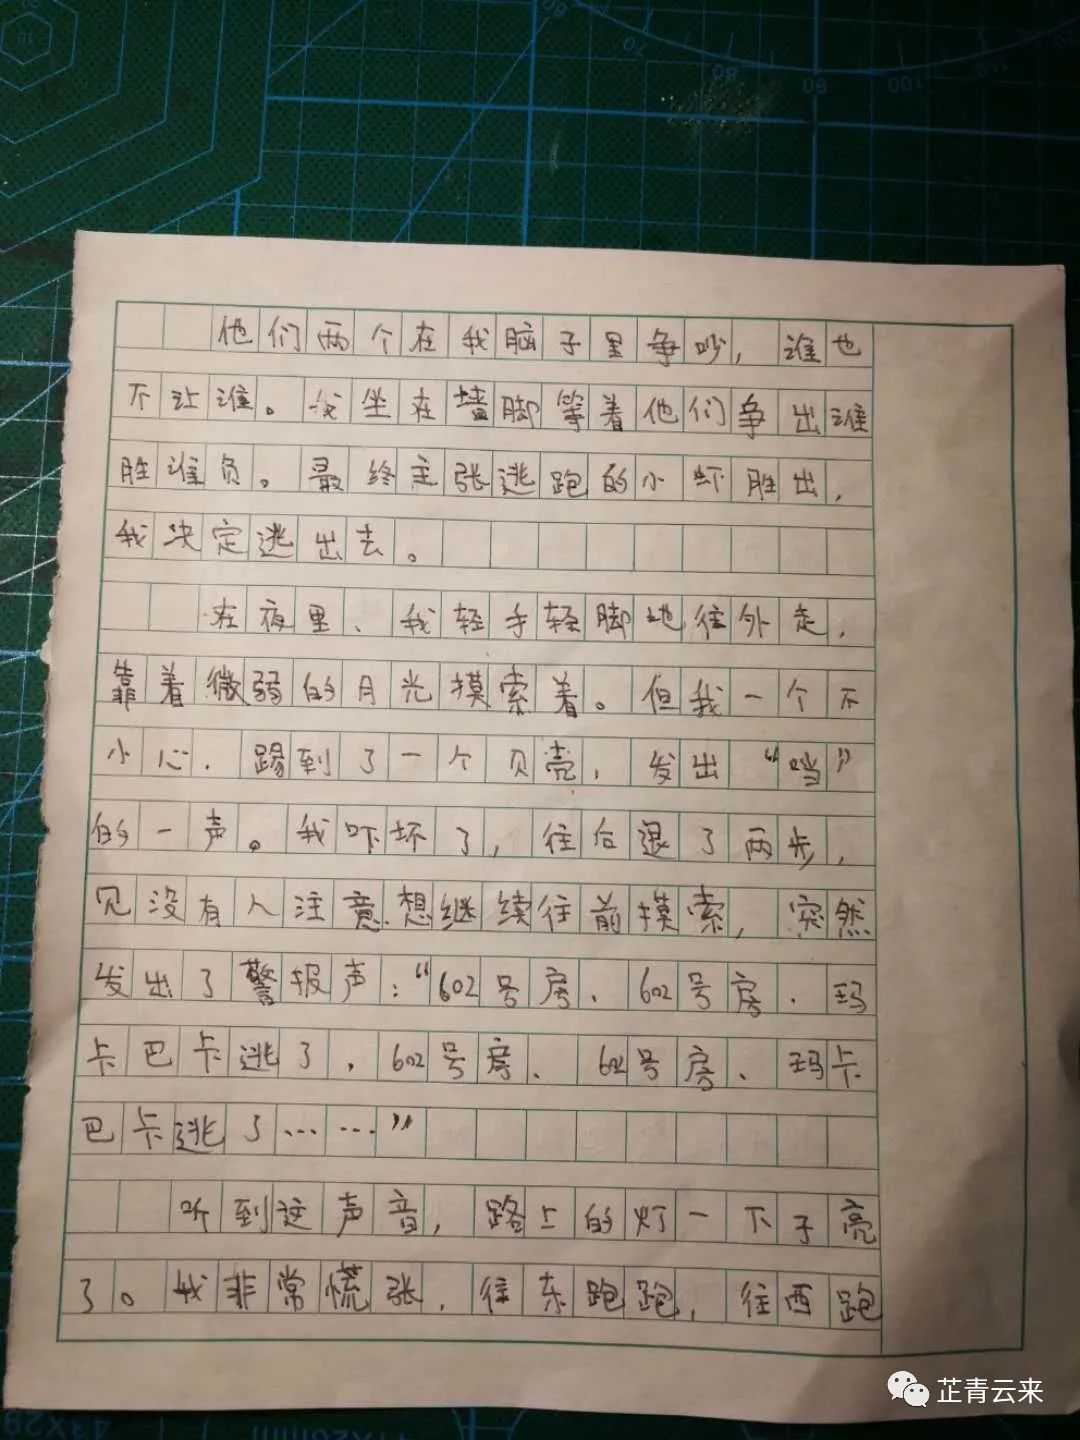 他们两个在我脑子里争吵，谁也
不让谁。我坐在墙脚等着他们争出谁
胜谁负。最终主张逃跑的小虾胜出，
我决定逃出去。
在夜里、我轻手轻脚地往外走，
靠着微弱的月光摸索着。但我一个不
小心，踢到了一个贝壳，发出“噹”
的一声。我吓坏了，往后退了两步，
见没有人注意.想继续往前摸索，突然
发出了警报声：“602号房、602号房、玛
卡巴卡逃了，602号房、602号房、玛卡
巴卡逃了……”
听到这声音，路上的灯一下子亮
了。我非常慌张，往东跑跑，往西跑
芷青云来
43X29
70
80
90
100
110